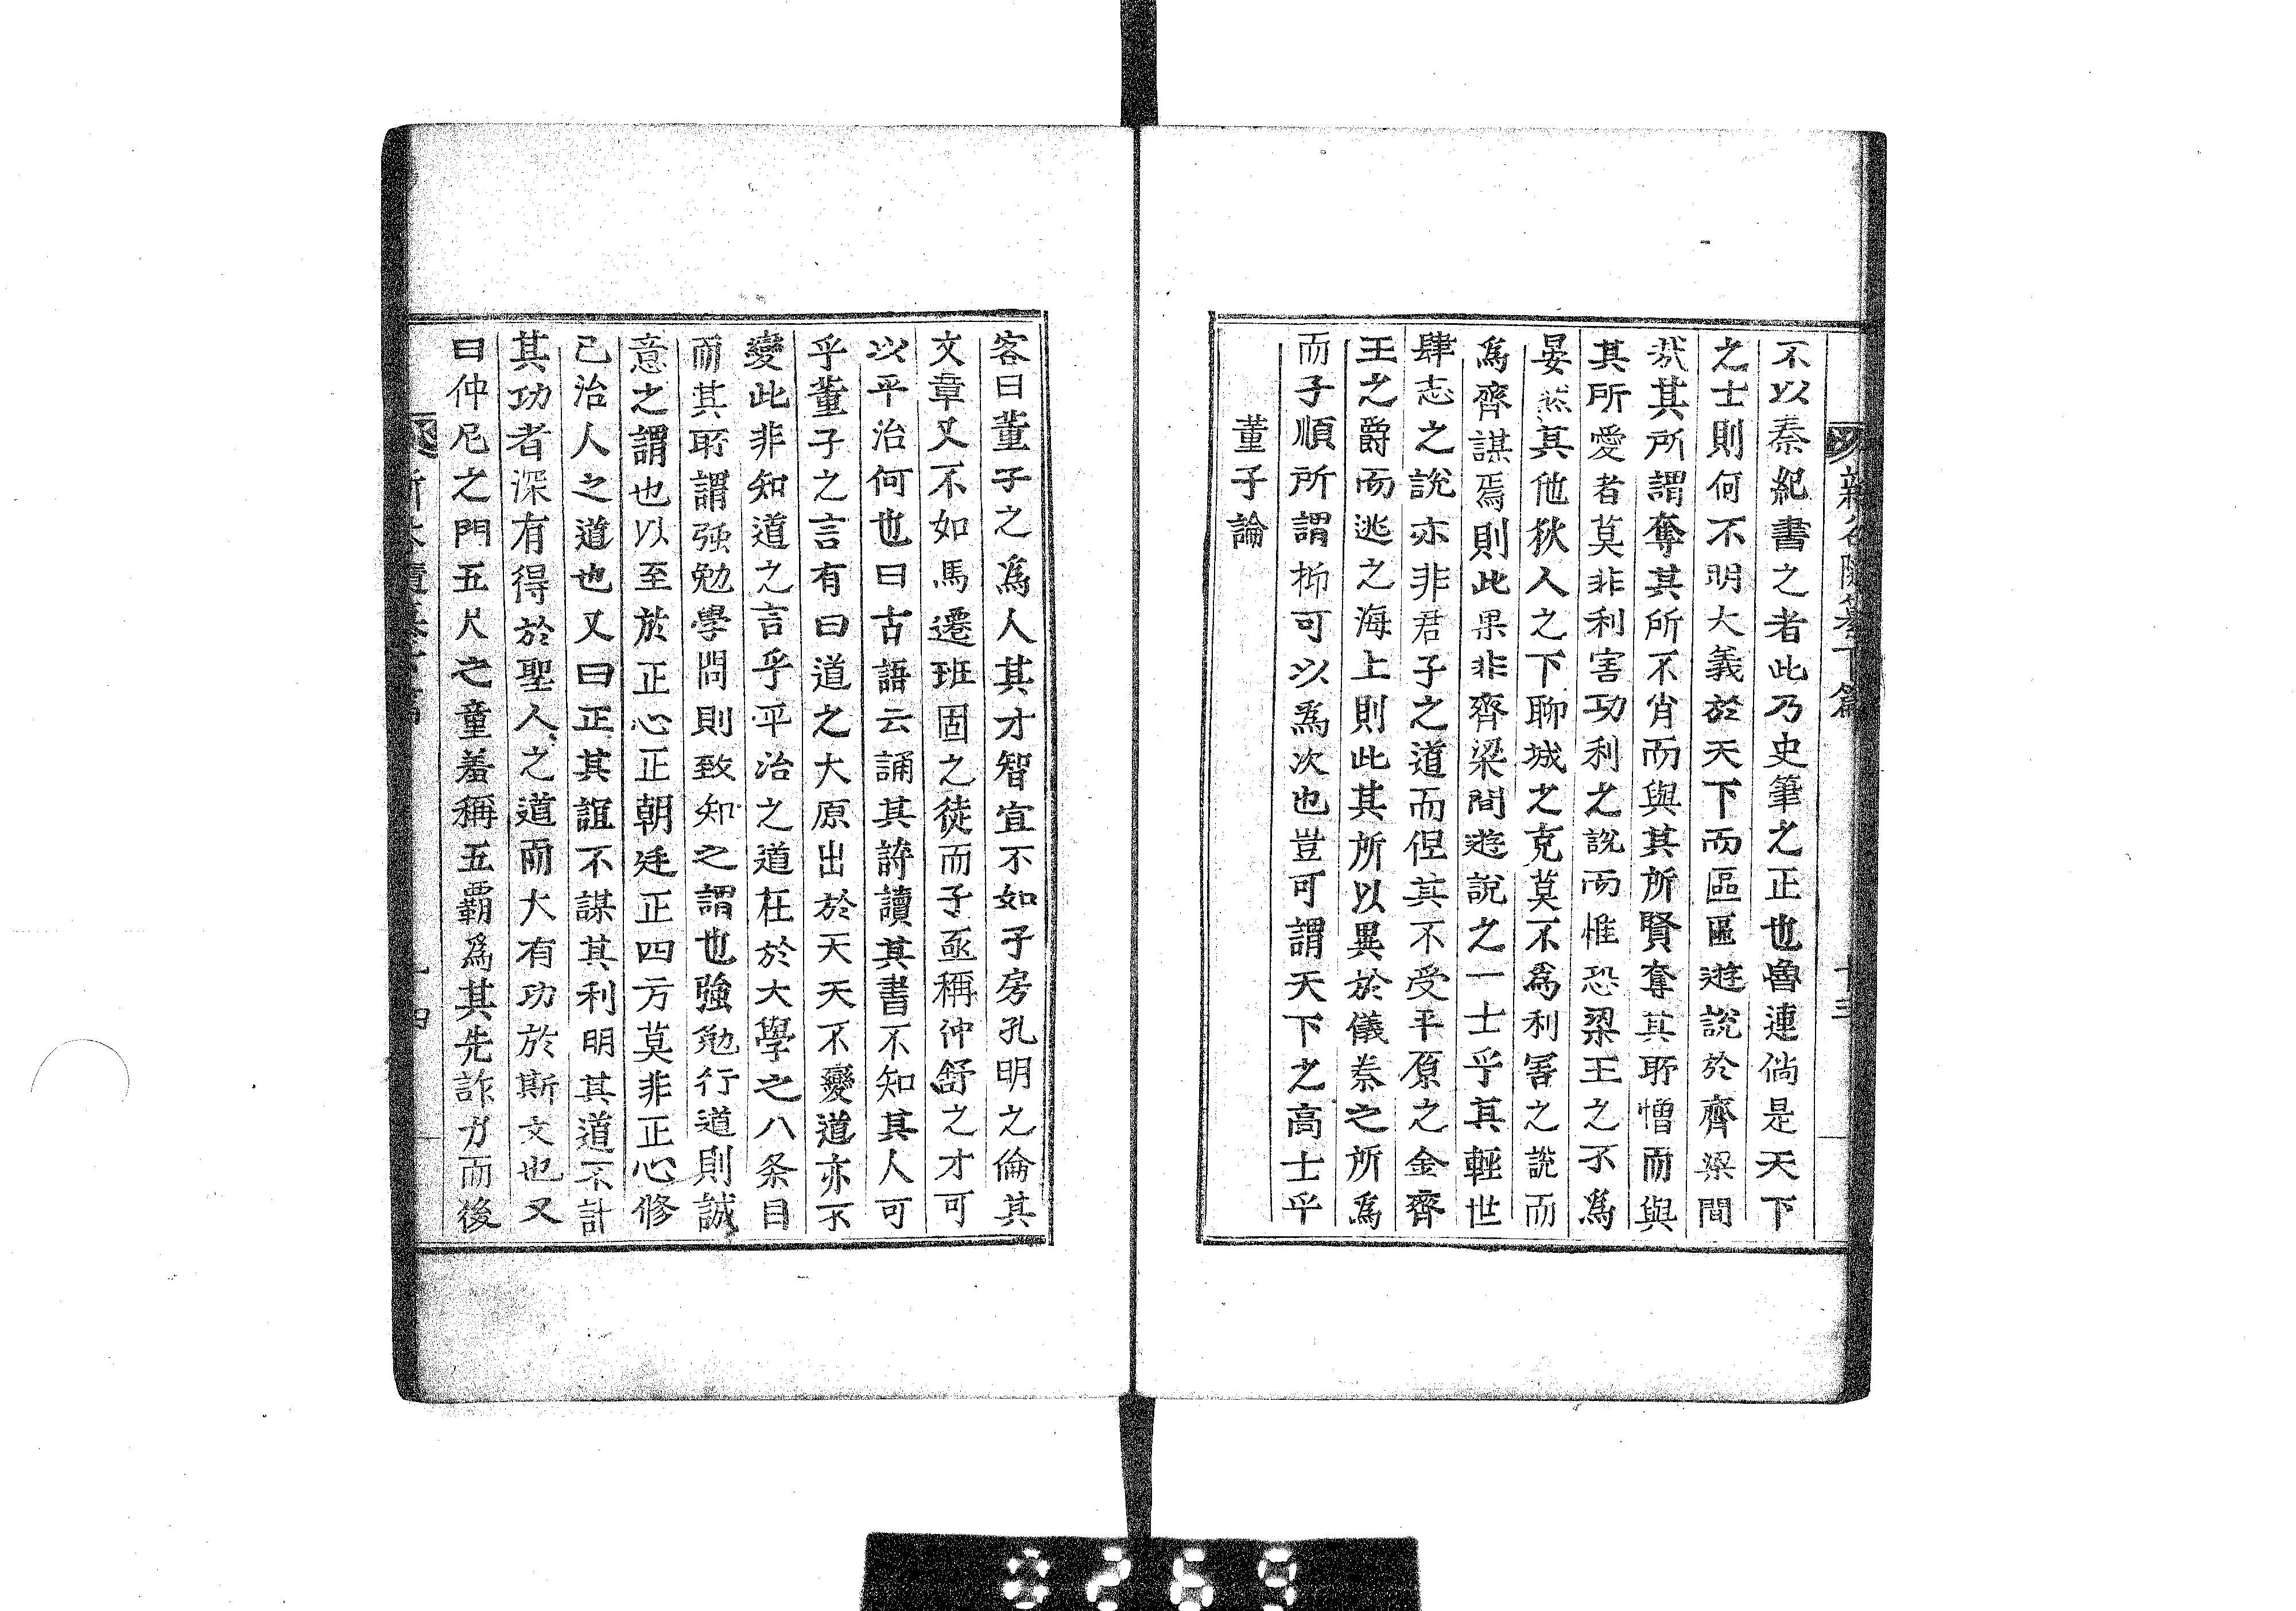 不以秦紀書之者此乃史筆之正也魯連倘是天下
之士則何不明大義於天下而區區遊說於齊梁間
哉其所謂奪其所不肖而與其所賢奪其所憎而與
其所愛者莫非利害功利之說而惟恐梁王之不爲
晏然其他狄人之下聊城之克莫不爲利害之說而
爲齊謀焉則此果非齊梁間遊說之一士乎其輕世
肆志之說亦非君子之道而但其不受平原之金齊
王之爵而逃之海上則此其所以異於儀秦之所爲
而子順所謂抑可以爲次也豈可謂天下之高士乎
董子論
客曰董子之爲人其才智宜不如子房孔明之倫其
文章又不如馬遷班固之徒而子亟稱仲舒之才可
以平治何也曰古語云誦其詩讀其書不知其人可
乎董子之言有曰道之大原出於天天不變道亦不
變此非知道之言乎平治之道在於大學之八条目
而其所謂强勉學問則致知之謂也強勉行道則誠
意之謂也以至於正心正朝廷正四方莫非正心修
己治人之道也又曰正其誼不謀其利明其道不計
其功者深有得於聖人之道而大有功於斯文也又
曰仲尼之門五尺之童羞稱五覇爲其先詐力而後
十四
8269